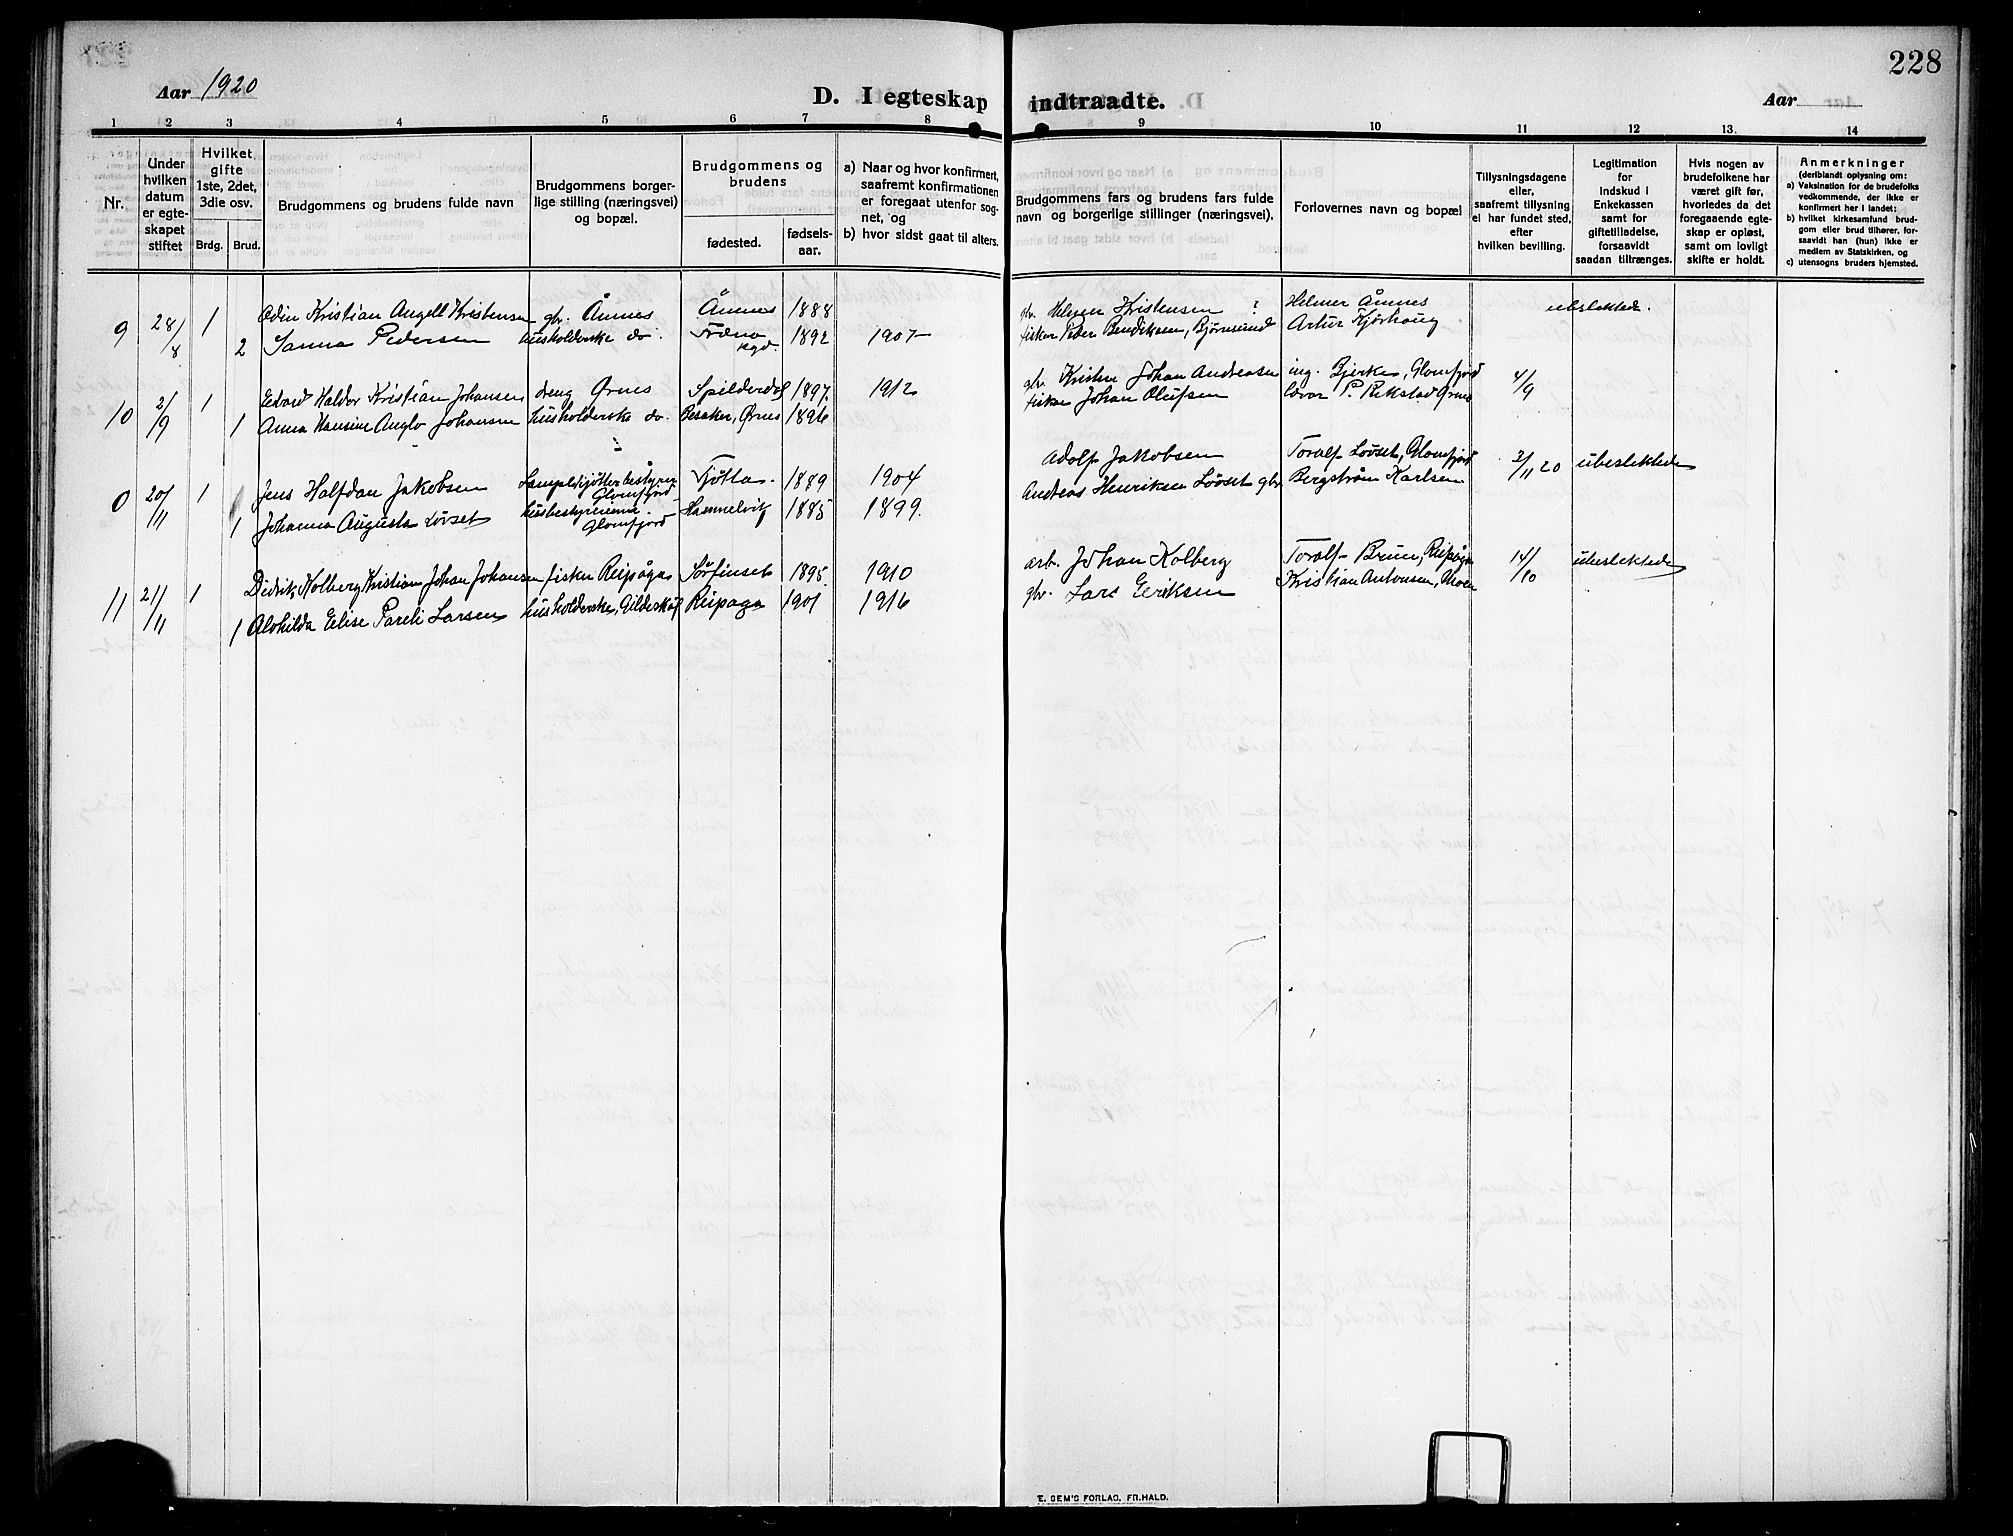 228
Aar 1920
D. I egteskap indtraadte.
Aar
1 2 3 4 5 6 7 8 9 10 11 12 13. 14
Nr.
Under hvilken datum er egteskapet stiftet
Hvilket gifte 1ste, 2det, 3die osv.
Brdg. Brud.
Brudgommens og brudens fulde navn
Brudgommens borgerlige stilling (næringsvei) og bopæl.
Brudgommens og brudens
fødested. fødselsaar.
a) Naar og hvor konfirmert, saafremt konfirmationen er foregaat utenfor sognet, og
b) hvor sidst gaat til alters.
Brudgommens fars og brudens fars fulde navn og borgerlige stillinger (næringsvei).
Forlovernes navn og bopæl
Tillysningsdagene eller, saafremt tillysning ei har fundet sted, efter hvilken bevilling.
Legitimation for Indskud i Enkekassen samt for giftetilladelse, forsaavidt saadan tiltrænges.
Hvis nogen av brudefolkene har været gift før, hvorledes da det foregaaende egteskap er opløst, samt om lovligt skifte er holdt.
Anmerkninger (deriblandt oplysning om:
a) Vaksination for de brudefolks vedkommende, der ikke er konfirmert her i landet:
b) hvilket kirkesamfund brudgom eller brud tilhører, forsaavidt han (hun) ikke er medlem av Statskirken, og
c) utensogns bruders hjemsted.
9 28/8 1 Odin Kristian Angell Kristensen gbr. Åmnes Åmnes 1888 gbr. Helmer Kristensen ? Helmer Åmnes ubeslektede.
2 Sanna Pedersen husholderske do. Træna 1892 1907 fisker Peder Bendiksen, Bjørnsund Artur Kjørhaug
10 2/9 1 Edvard Haldor Kristian Johansen dreng Ørnes Spilderdal 1897. 1912 gbr. Kristen Johan Andreasen ing. Bjerke, Glomfjord 4/9
1 Anna Hansine Anglo Johansen husholderske do. Besaker, Ørnes 1896 fisker Johan Olufsen Edvar P. Rekstad Ørnes
0 20/11 1 Jens Halfdan Jakobsen Glomfjord Tjøtta. 1889 1904 Adolf Jakobsen Toralf Løvset, Glomfjord 2/11 20 ubeslektede
1 Johanna Augusta Løvset husbestyrerinne. Glomfjord Hammelvik 1885 1899. Andreas Henriksen Løvset gbr. Bergstrøm Karlsen
11 21/11 1 Didrik Kolberg Kristian Johan Johansen fisker Reipåga Sørfinset 1895. 1910 arb. Johan Kolberg Toralf Bruun, Reipåga 14/10 ubeslektede
1 Alvhilda Elise Pareli Larsen husholderske, Gildeskål Reipaga 1901 1916 gbr. Lars Eriksen Kristian Antonsen, Moen
E. SEM'S FORLAG, FR.HALD.